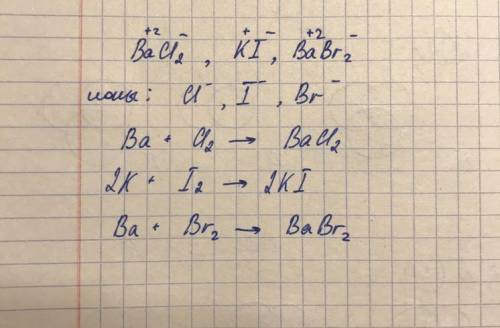 Ba⁺²Cl₂⁻, K⁺I⁻, Ba⁺²Br₂⁻
ионы: Cl⁻, I⁻, Br⁻
Ba + Cl₂ → BaCl₂
2K + I₂ → 2KI
Ba + Br₂ → BaBr₂